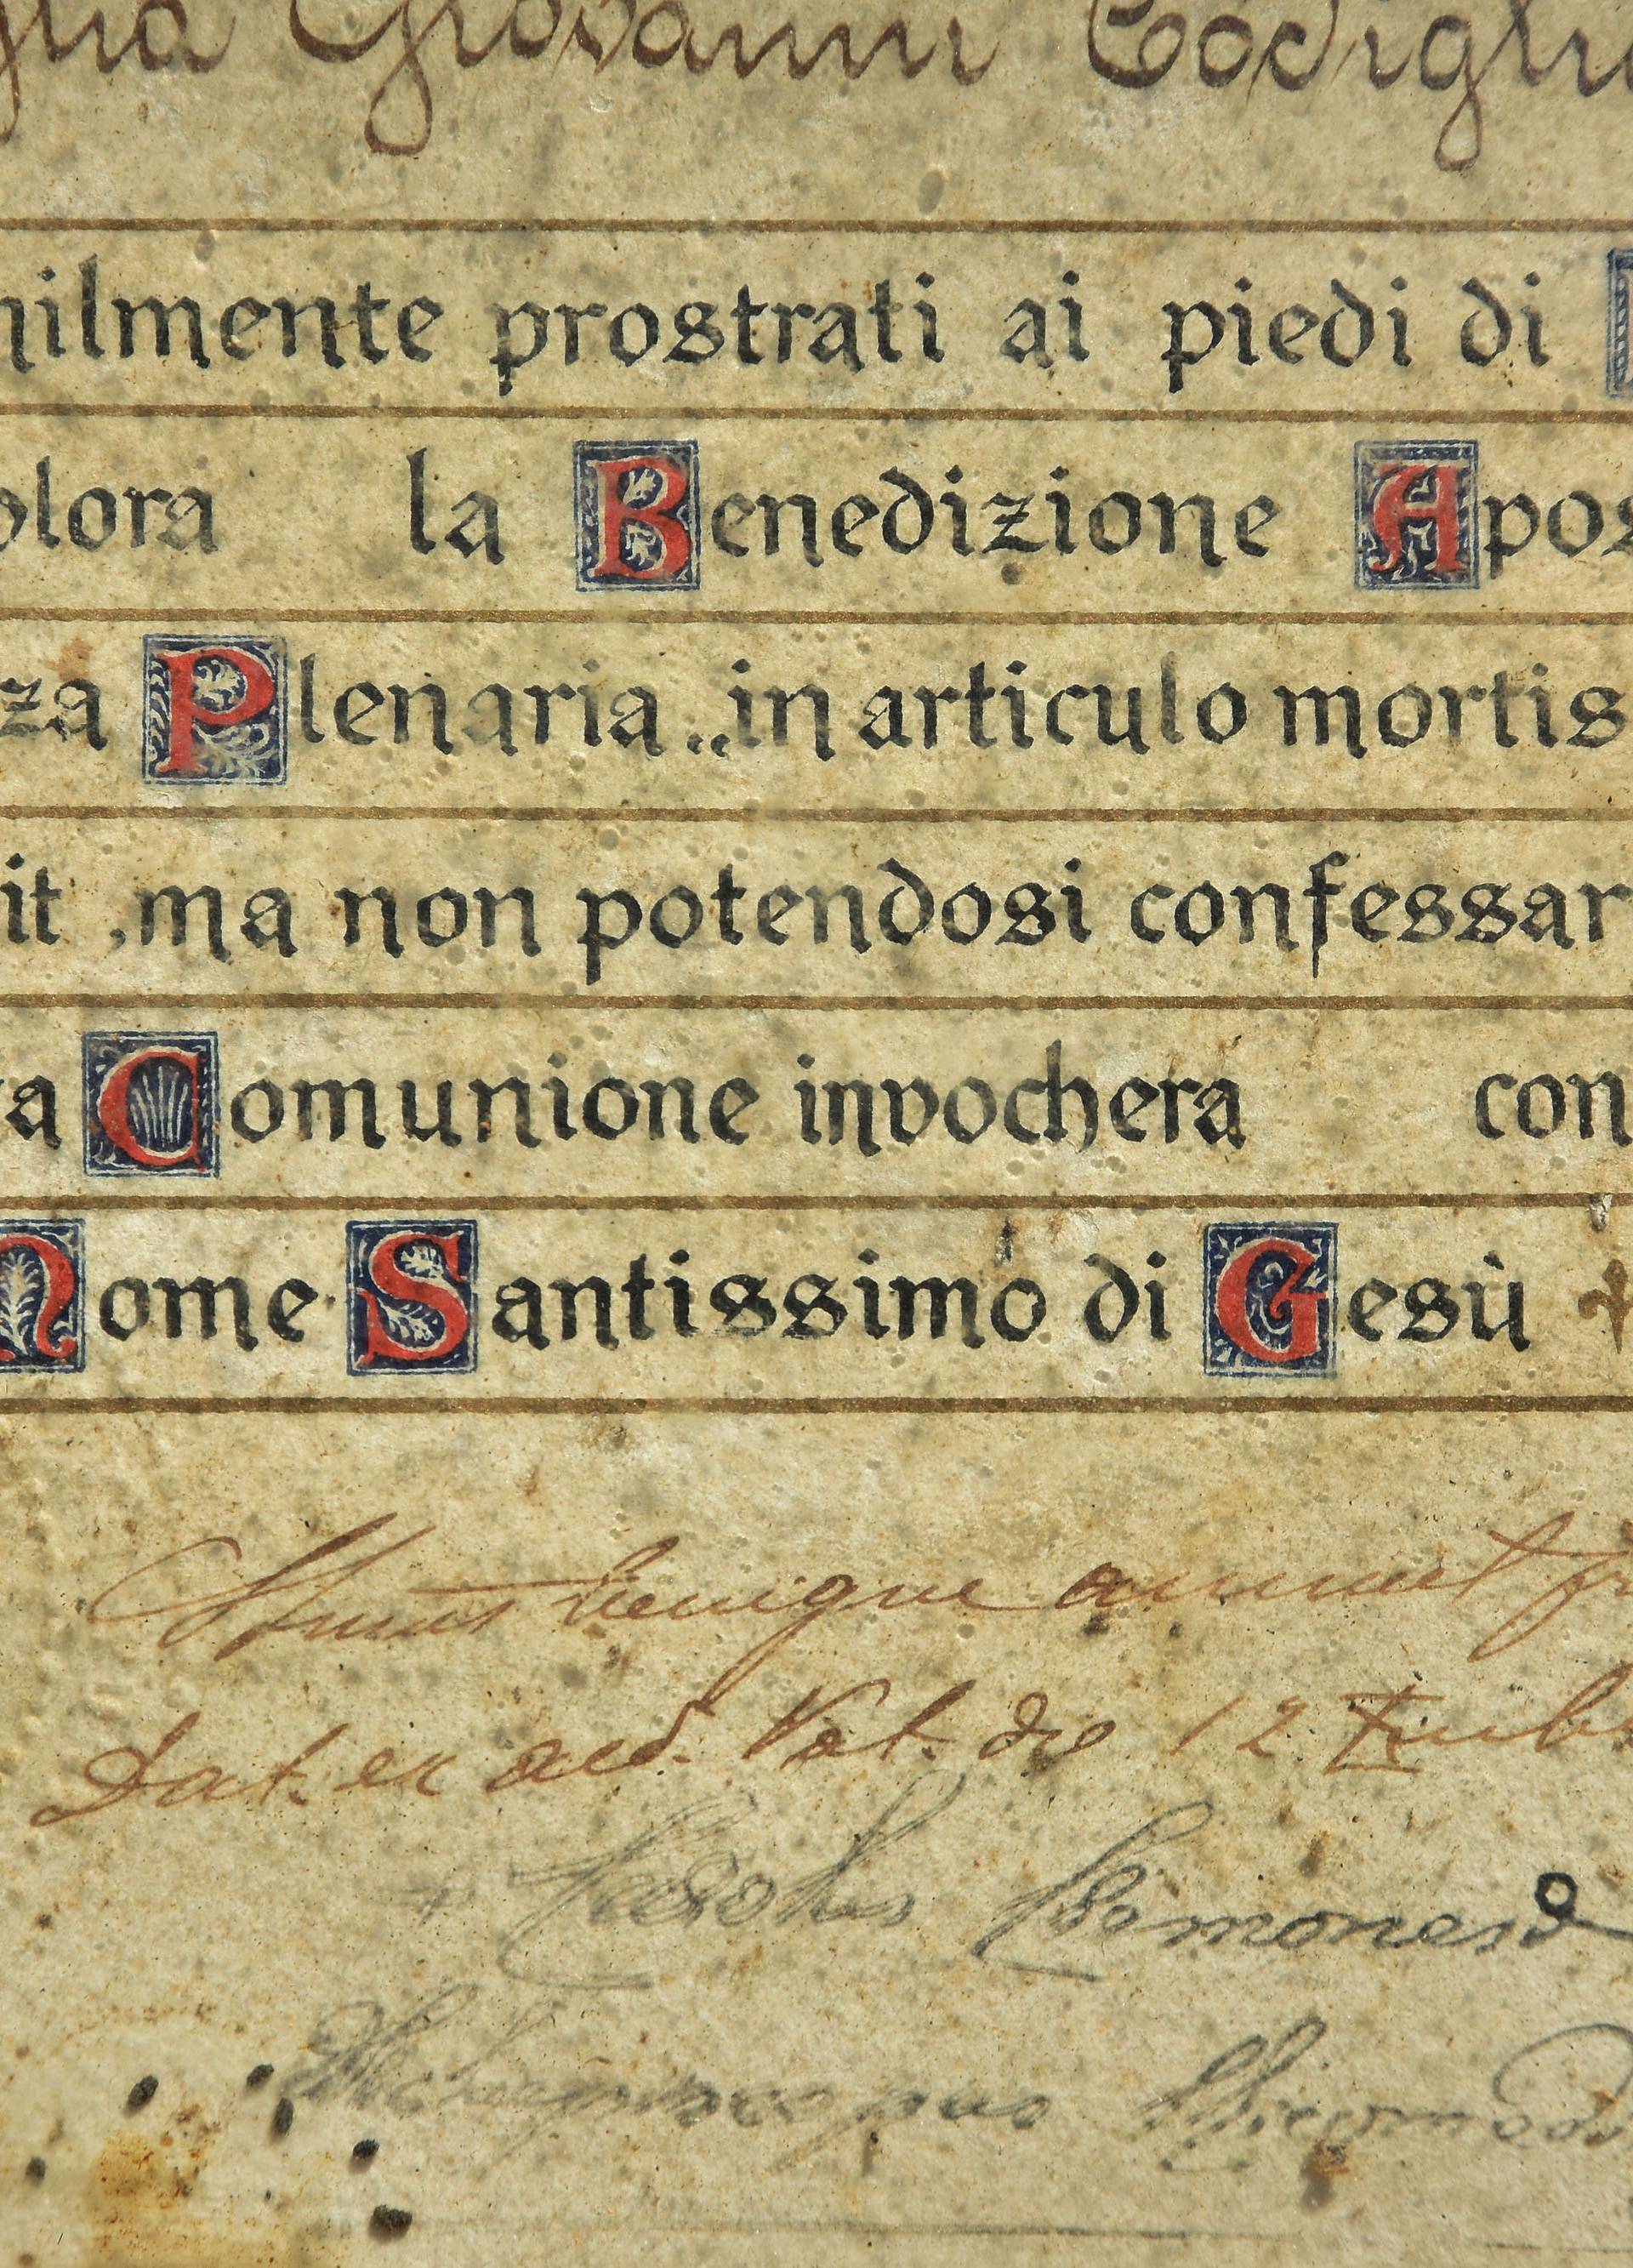 glia Giovanni Codiglia
milmente prostrati ai piedi di
plora la Benedizione Apos
za Plenaria „in articulo mortis
it, ma non potendosi confessar
a Comunione invochera con
Nome Santissimo di Gesù
benigne annuit
Dat. ex aed. Vat. die 12 Xmbr
+
Archiepiscopus